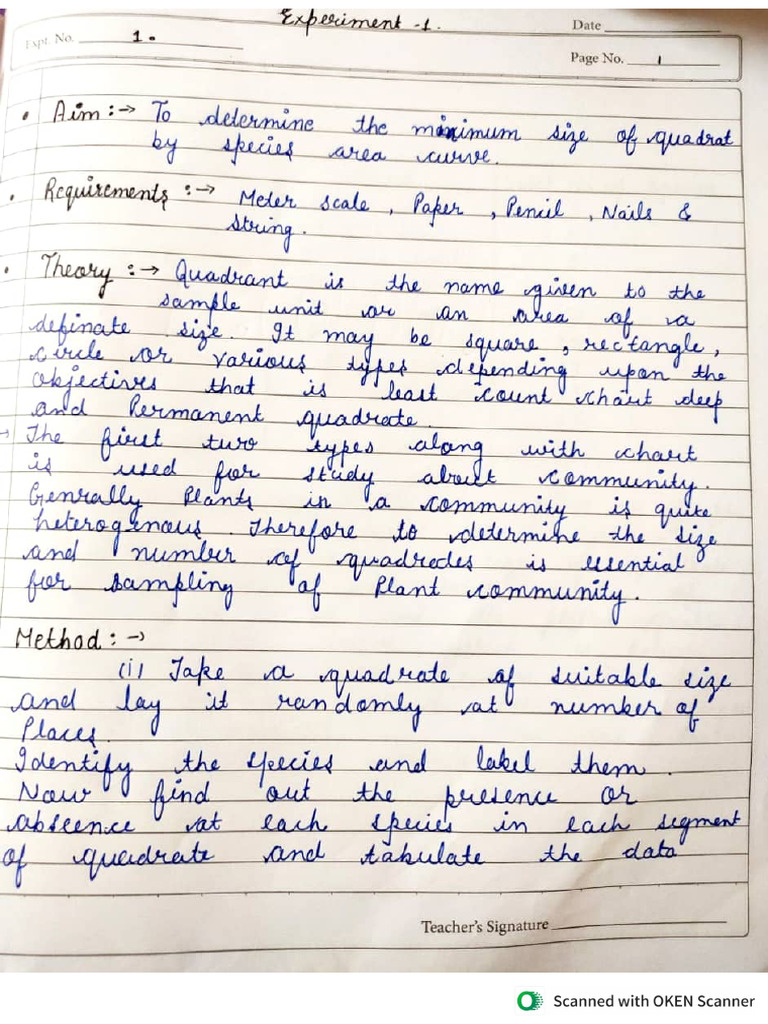 Experiment -1.
Date
Expt. No. 1.
Page No. 1
• Aim :→ To determine the minimum size of quadrat
by species area curve.
• Requirements :→ Meter scale , Paper , Pencil , Nails &
String.
• Theory :→ Quadrant is the name given to the
sample unit or an area of a
definate size. It may be square, rectangle,
circle or various types depending upon the
objectives that is least count chart deep
and Permanent quadrate.
→ The first two types along with chart
is used for study about community.
Genrally Plants in a community is quite
heterogenous. Therefore to determine the size
and number of quadrodes is essential
for sampling of Plant community.
Method : →
(i) Take a quadrate of suitable size
and lay it randomly at number of
Places.
Identify the species and label them.
Now find out the presence or
abscence at each species in each segment
of quadrate and tabulate the data
Teacher's Signature
Scanned with OKEN Scanner